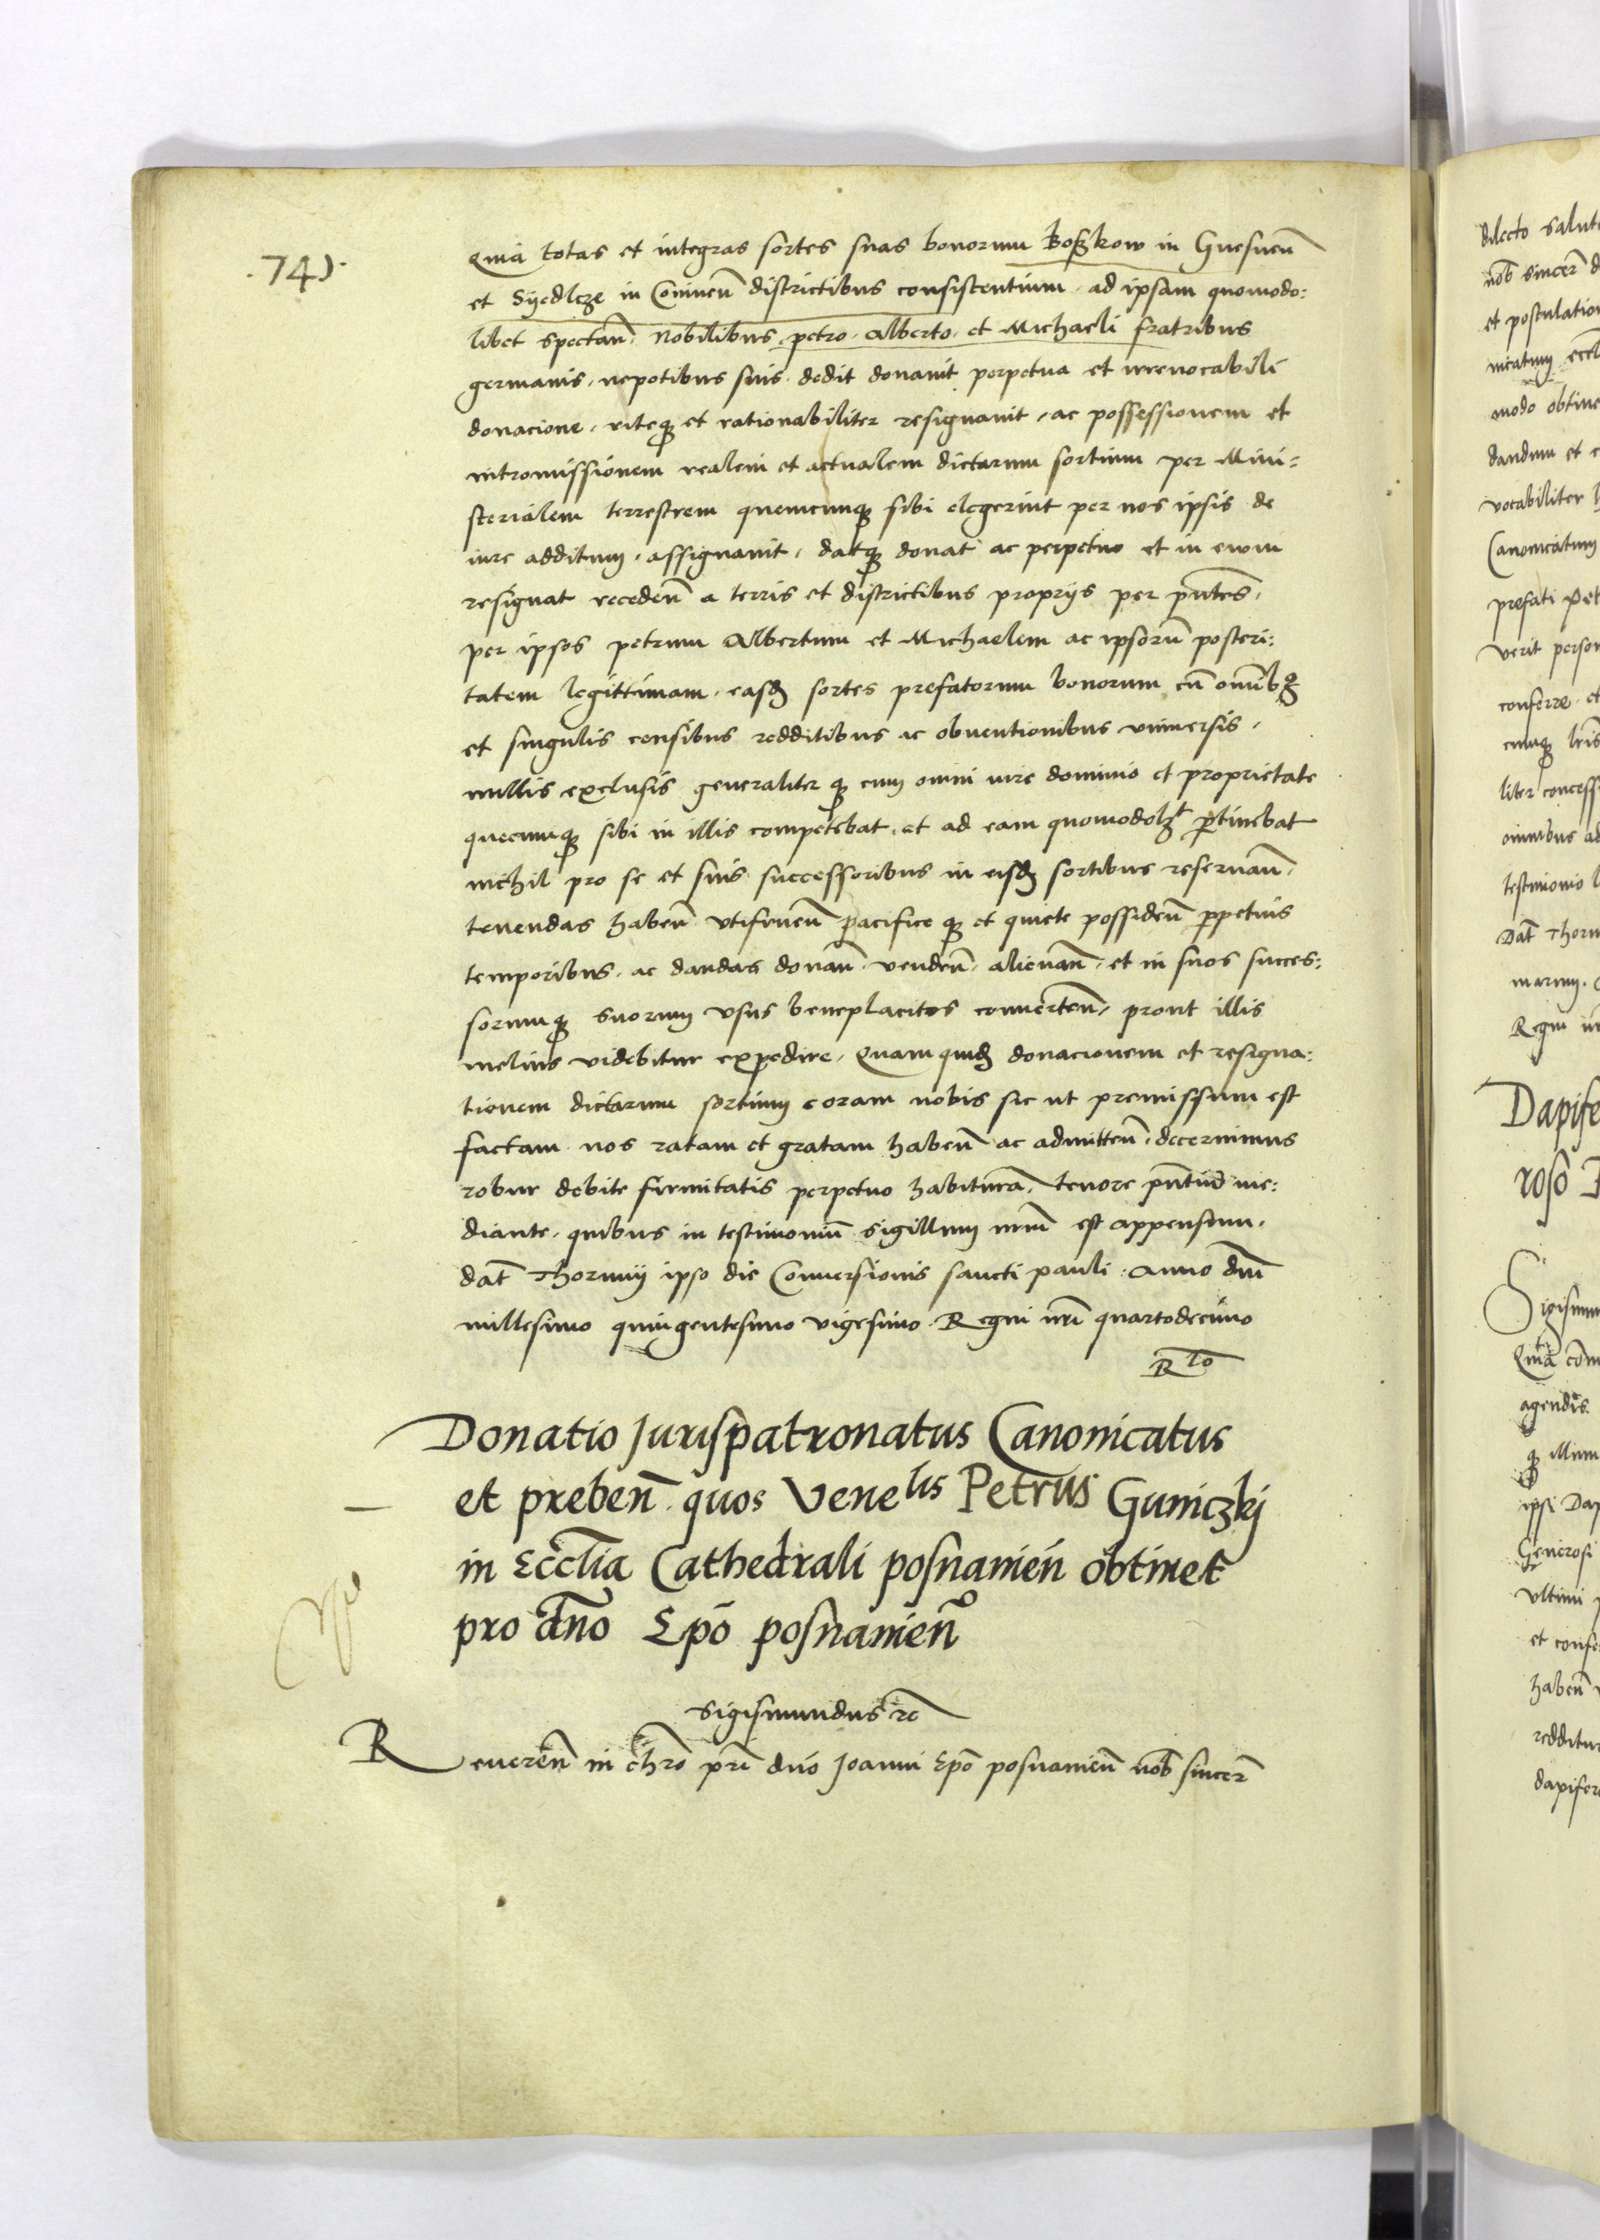 .741.
Quia totas et integras sortes suas bonorum Boszkow in Gnesnen̄
et Syedlcze in Coninen̄ districtibus consistentium. ad ipsam quomodo:
libet spectan̄. Nobilibus petro. Alberto. et Michaeli fratribus
germanis, nepotibus suis. dedit donauit perpetua et irreuocabili
donacione, riteqꝫ et rationabiliter resignauit, ac possessionem et
intromissionem realem et actualem dictarum sortium per Mini=
sterialem terrestrem quemcumqꝫ sibi elegerint per nos ipsis de
iure additum, assignauit, datqꝫ donat ac perpetuo et in ewm
resignat receden̄ a terris et districtibus proprijs per pn̄tes,
per ipsos petrum Albertum et Michaelem ac ipsorū posteri:
tatem legittimam, easdꝫ sortes prefatorum bonorum cū omībꝫ
et singulis censibus redditibus ac obuentionibus vniuersis,
nullis exclusis generaliterqꝫ cum omni iure dominio et proprietate
quecumqꝫ sibi in illis competebat. et ad eam quomodolꝫt ꝑtinebat
nichil pro se et suis successoribus in eisdꝫ sortibus reseruan̄,
tenendas haben̄ vtifruen̄ pacificeqꝫ et quiete possiden̄ ꝑpetuis
temporibus. ac dandas donan̄. venden̄. alienan̄. et in suos succes:
sorumqꝫ suorum vsus beneplacitos conuerten̄, prout illis
melius videbitur expedire, Quam quidꝫ donacionem et resigna:
tionem dictarum sortium coram nobis sic ut premissum est
factam. nos ratam et gratam haben̄ ac admitten̄. decernimus
robur debite firmitatis perpetuo habiturā, tenore pn̄tiū me:
diante. quibus in testimoniū sigillum nr̄m est appensum.
dat̄ Thorunij ipso die Conuersionis sancti pauli. Anno dn̄i
millesimo quingentesimo vigesimo. Regni nr̄i quartodecimo
R to
Donatio Jurispatronatus Canonicatus
et preben̄. quos Venelis Petrus Guniczkj
in Eccl̄ia Cathedrali posnanien̄ obtinet
pro dn̄o Epō posnanien̄
Sigismundus rc̄
Reueren̄ in chr̄o pr̄i dn̄o Joanni Epō posnanien̄ nob̄ sincer̄
dilecto salut
nob̄ sincer̄ d
et postulation
nicatum eccl
modo obtine
dandum et c
vocabiliter
Canonicatum
prefati Pet
verit person
conferre. et
cumqꝫ
liter concess
omnibus ad
testimonio l
Dat̄ Thorn
marum.
Regni nr̄
Dapife
roso
Sigismun
Quia com
agendis.
qꝫ illum
ipsi Dap
Generosi
vltimi
et confe
haben̄
redditu
dapifer